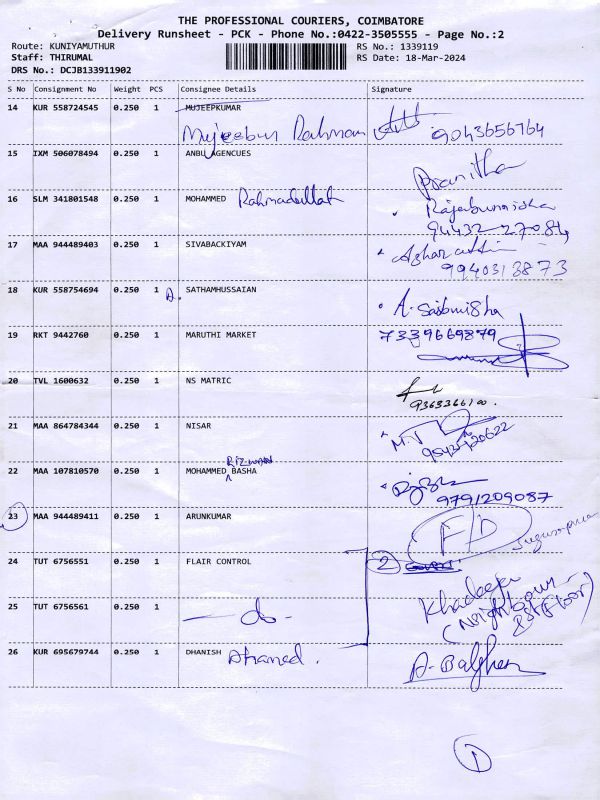 THE PROFESSIONAL COURIERS, COIMBATORE
Delivery Runsheet - PCK - Phone No.:0422-3505555 - Page No.:2
Route: KUNIYAMUTHUR RS No.: 1339119
Staff: THIRUMAL RS Date: 18-Mar-2024
DRS No.: DCJB133911902
S No Consignment No Weight PCS Consignee Details Signature
14 KUR 558724545 0.250 1 MUJEEPKUMAR
Mujeebur Rahman 9043656764
15 IXM 506078494 0.250 1 ANBU AGENCUES
Pranitha
16 SLM 341801548 0.250 1 MOHAMMED Rahmadullah
Rajabunnisha
94432 27084
17 MAA 944489403 0.250 1 SIVABACKIYAM
9940313873
18 KUR 558754694 0.250 1 A. SATHAMHUSSAIAN
A. Saibunisha
19 RKT 9442760 0.250 1 MARUTHI MARKET 7339669879
20 TVL 1600632 0.250 1 NS MATRIC
9363366100.
21 MAA 864784344 0.250 1 NISAR
9543420622
RIZWAN
22 MAA 107810570 0.250 1 MOHAMMED BASHA
9791209087
23 MAA 944489411 0.250 1 ARUNKUMAR
F/D
24 TUT 6756551 0.250 1 FLAIR CONTROL 2
Khadeeja
25 TUT 6756561 0.250 1 - do -
(Neighbour
1st floor)
26 KUR 695679744 0.250 1 DHANISH Ahamed.
1